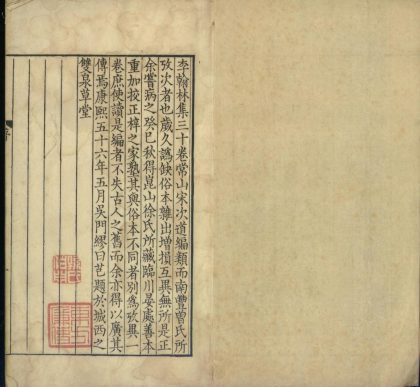 李翰林集三十卷常山宋次道編類而南豐曾氏所
攷次者也歲久譌缺俗本雜出增損互異無所是正
余嘗病之癸巳秋得崑山徐氏所藏臨川晏處善本
重加挍正梓之家塾其與俗本不同者別為攷異一
卷庶使讀是編者不失古人之舊而余亦得以廣其
傳焉康熙五十六年五月吳門繆曰芑題於城西之
雙泉草堂